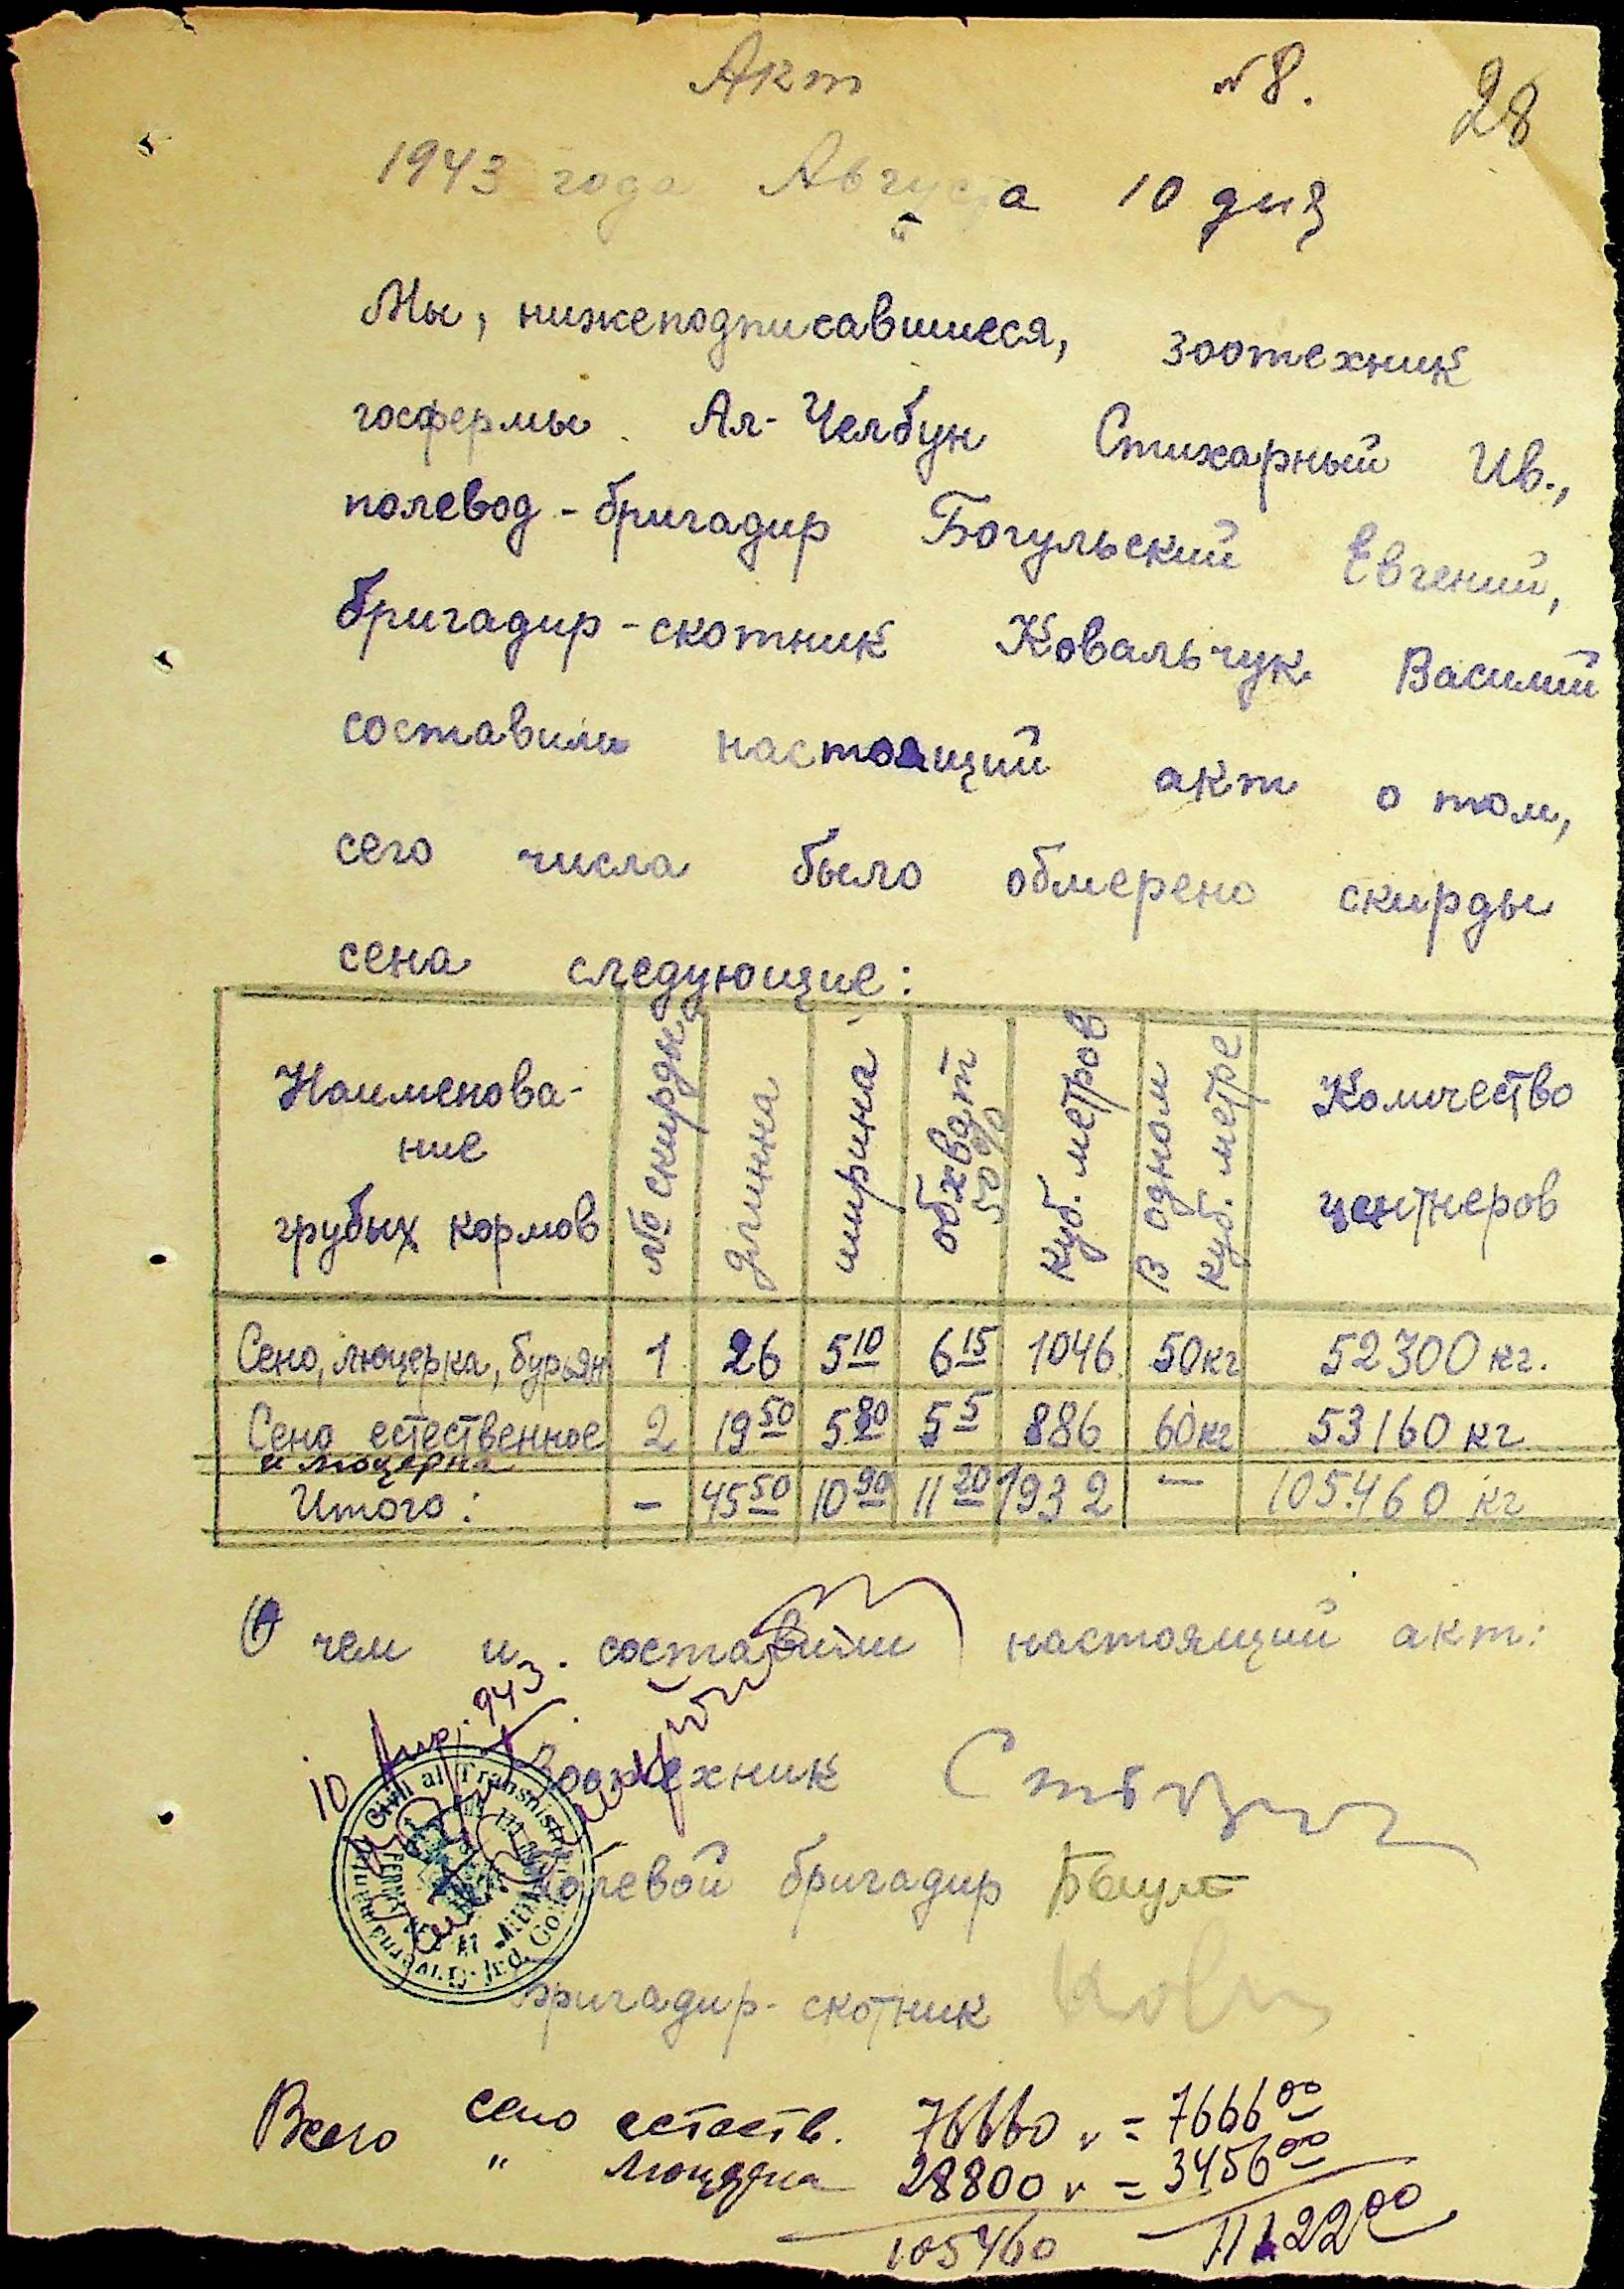 Акт №8. 28
1943 года Августа 10 дня
Мы, нижеподписавшиеся, зоотехник
госфермы Ал-Челбун Стихарный Ив.,
полевод-бригадир Богульский Евгений,
бригадир-скотник Ковальчук Василий
составили настоящий акт о том,
сего числа было обмерено скирды
сена следующие:
Наименова-
ние
грубых кормов
№ скирды
длинна
ширина
обхват
50%
куб. метров
В одном
куб. метре
Количество
центнеров
Сено, люцерка, бурьян 1 26 5 10 6 15 1046 50кг 52300 кг.
Сено естественное 2 19 50 5 80 5 5 886 60кг 53160 кг
и люцерна
Итого: - 45 50 10 90 11 20 1932 — 105.460 кг
О чем и составили настоящий акт:
10 943
Зоотехник
Полевой бригадир
Бригадир-скотник
Civil al Transnistriei
Всего сено естеств. 76660 = 7666 00
" люцерна 28800 = 3456 00
105460 11122 00